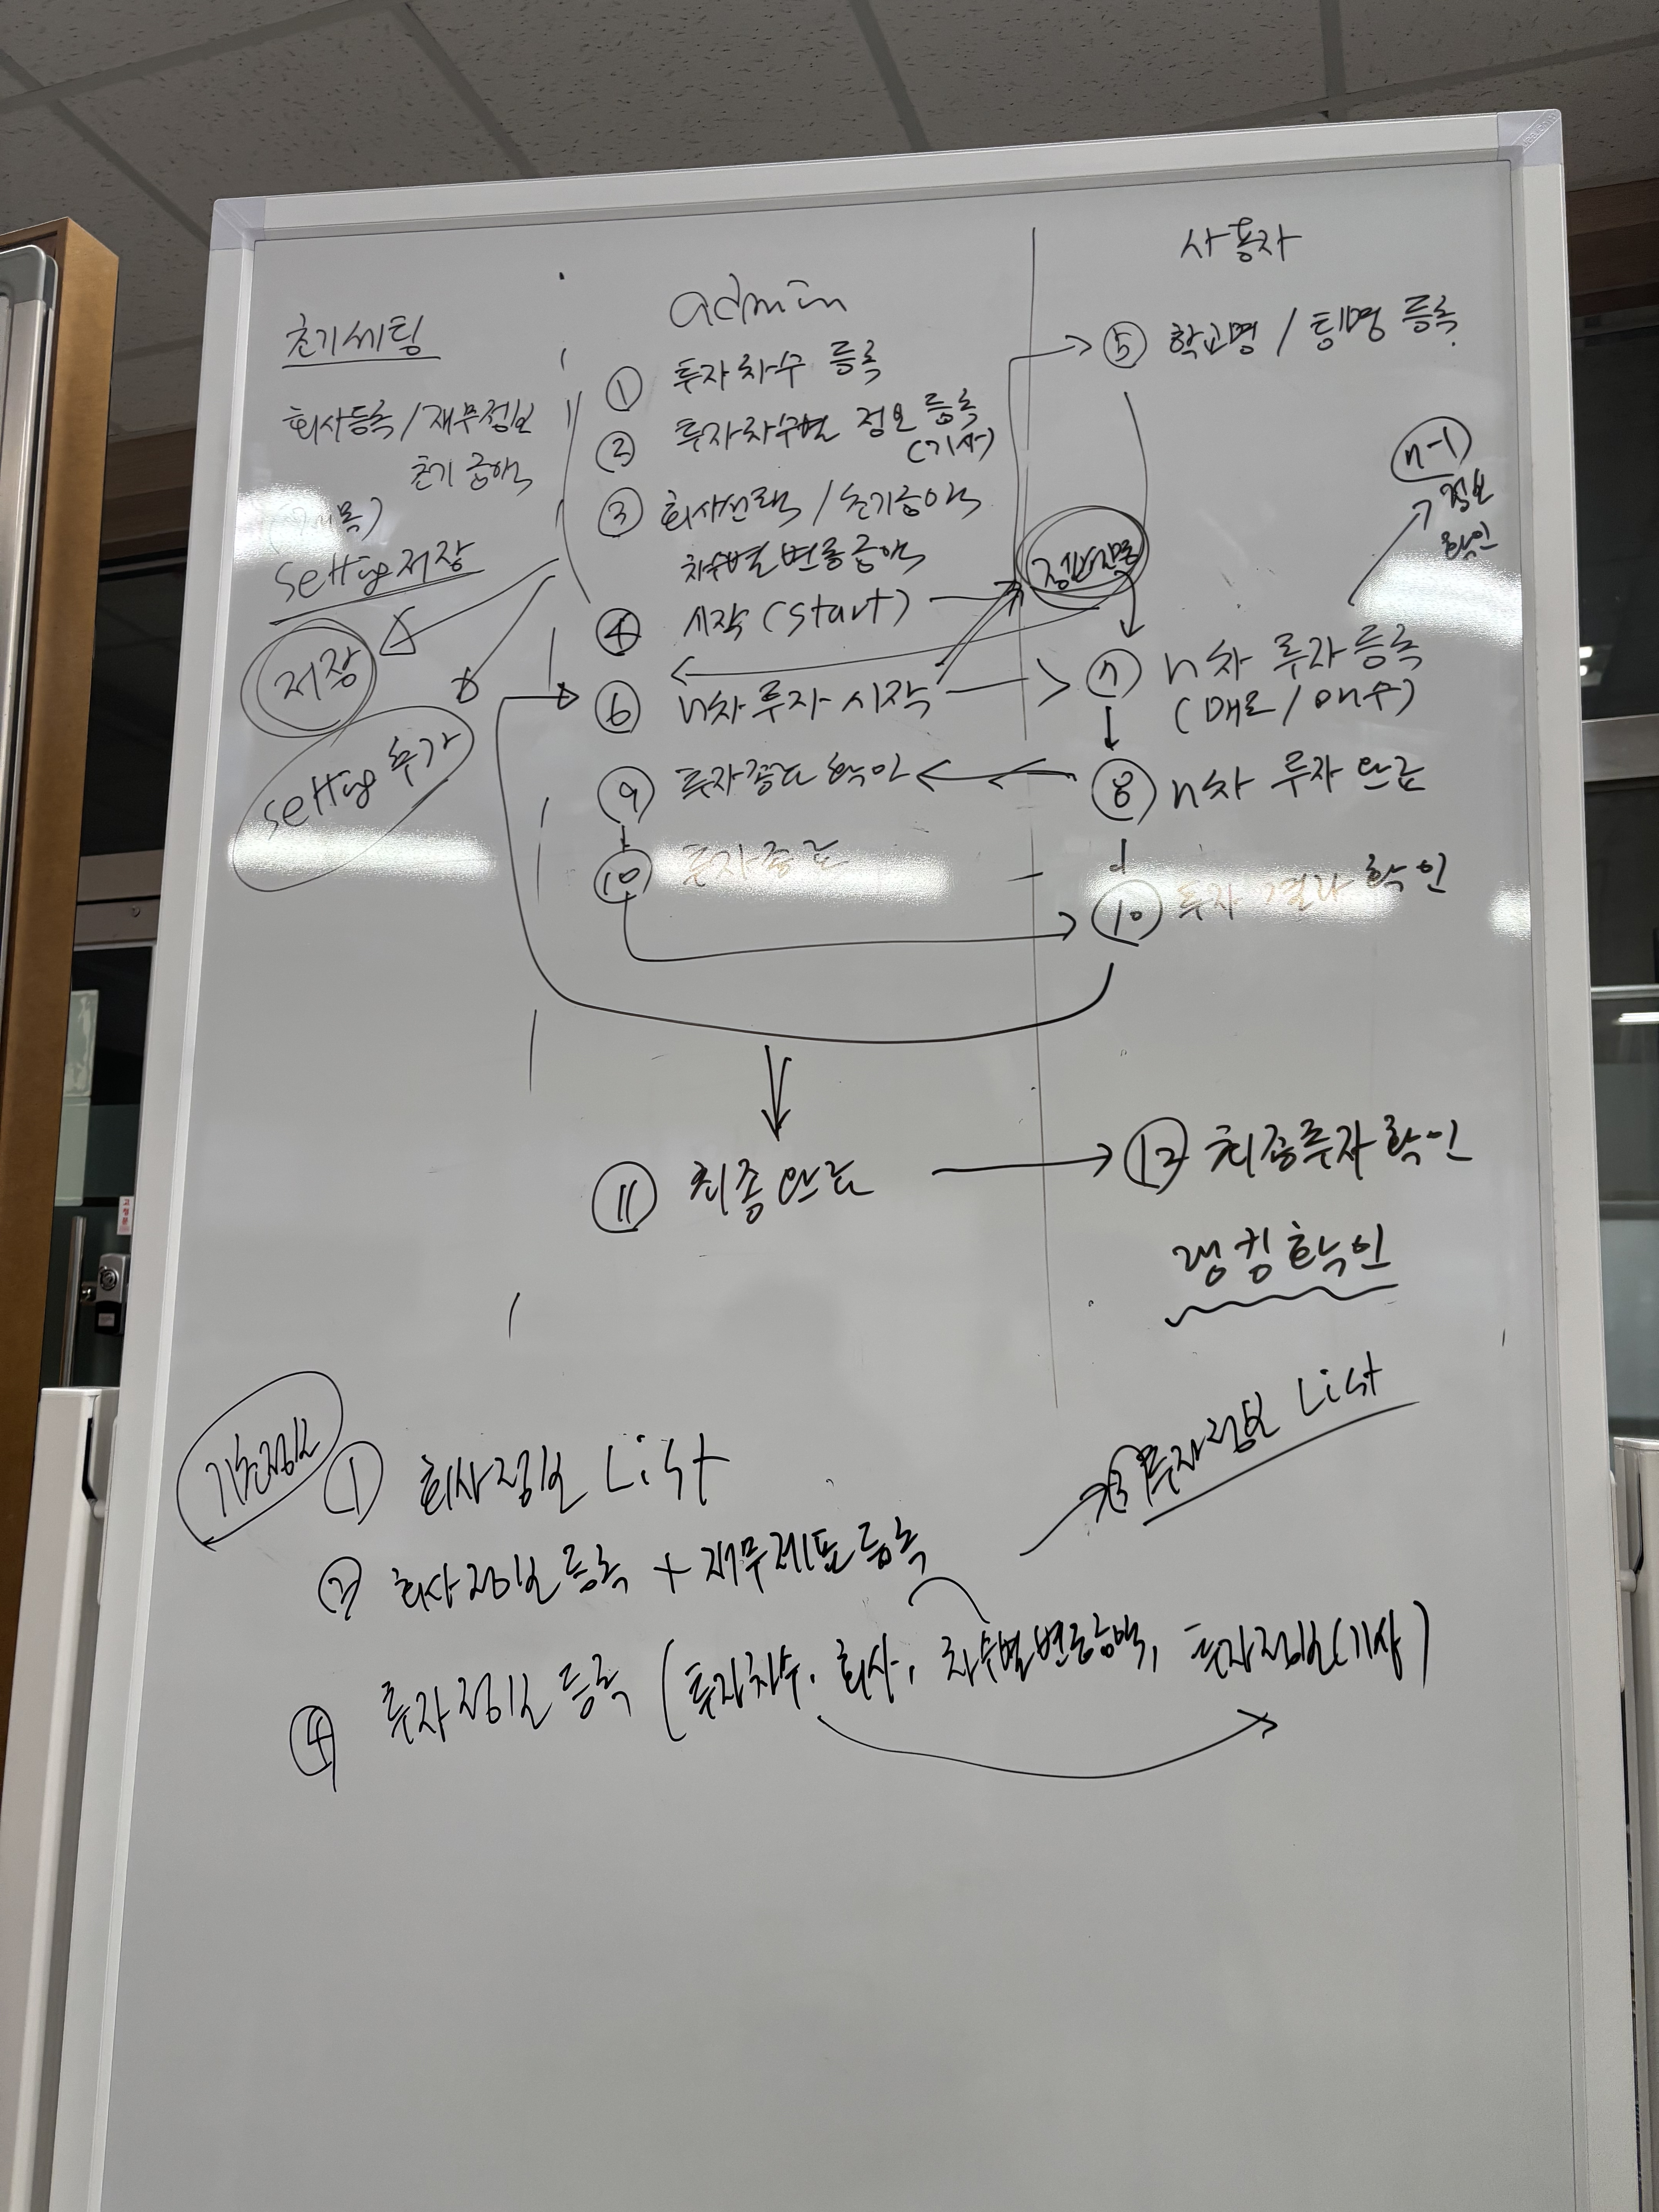 초기세팅
회사등록 / 재무정보
초기금액
setting 저장
저장
setting 추가
admin
① 투자차수 등록
② 투자차수별 정보 등록
(기사)
③ 회사선택 / 초기금액
차수별 변동금액
④ 시작 (start)
⑥ n차 투자 시작
⑨ 투자종료 확인
⑩ 투자종료
⑪ 최종완료
사용자
⑤ 학교명 / 팀명 등록
n-1
정보
확인
⑦ n차 투자등록
(매도 / 매수)
⑧ n차 투자 완료
⑩ 투자 결과 확인
⑫ 최종투자 확인
랭킹확인
기초정보
① 회사정보 List
② 회사정보 등록 + 재무제표 등록
③ 투자정보 List
④ 투자정보 등록 (투자차수, 회사, 차수별변동금액, 투자정보(기사)